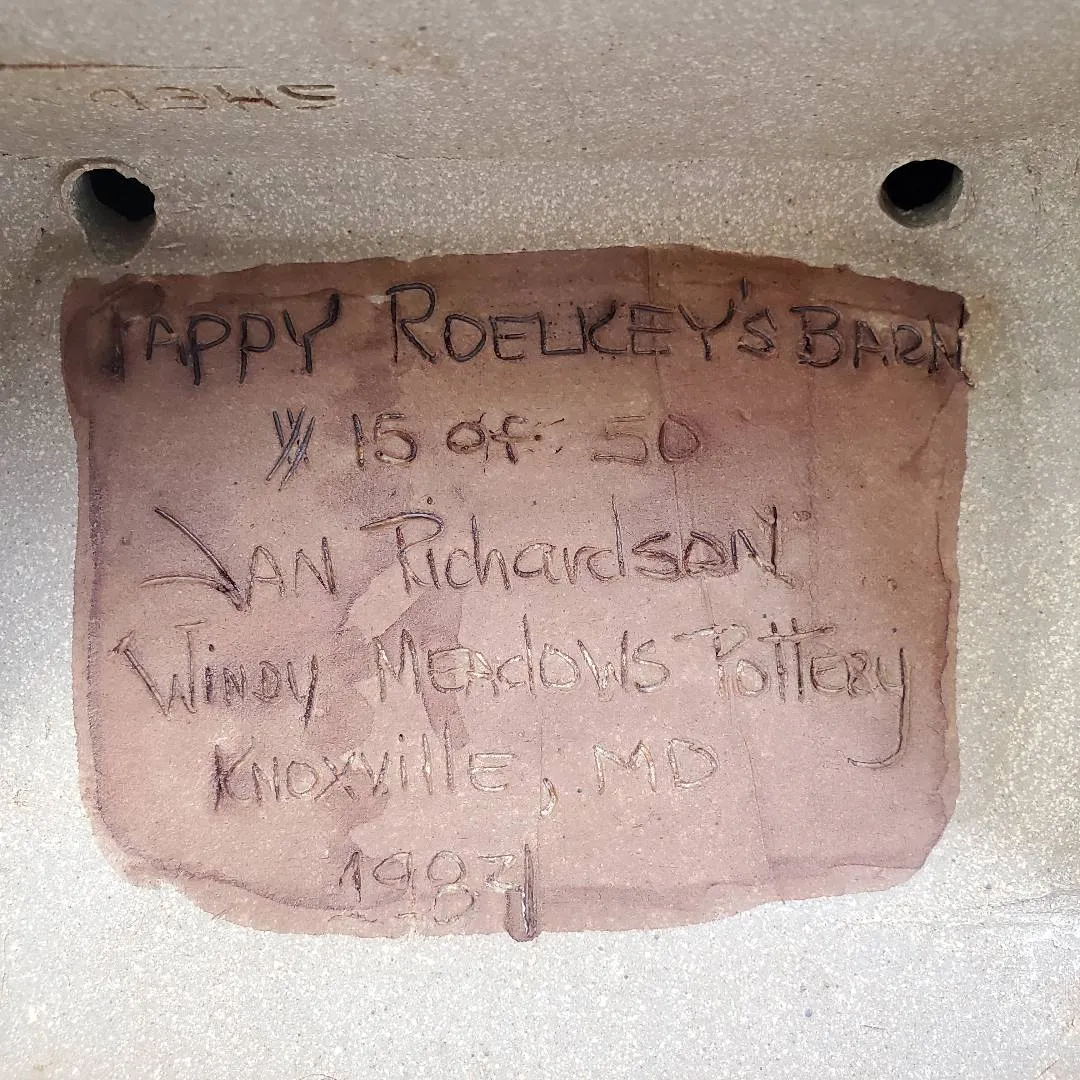 PAPPY ROELKEY'S BARN
# 15 of 50
JAN RichardsoN
WiNDy MEAdOWs POttERy
KNOXVillE, MD
1984